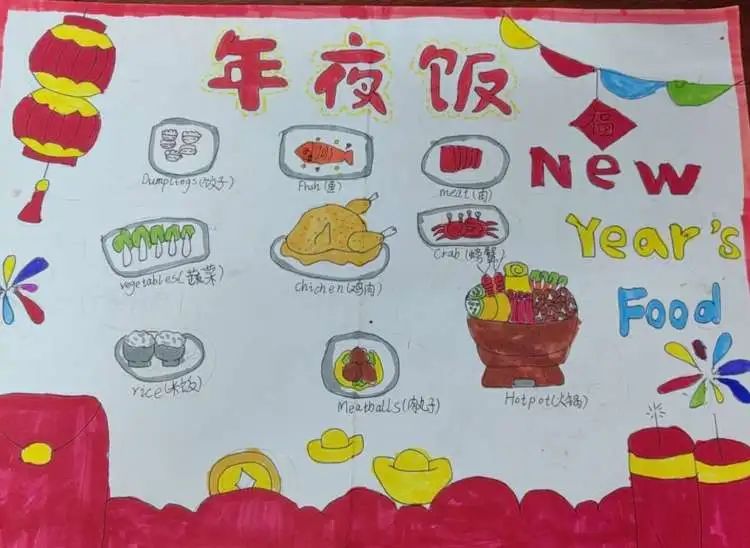 年夜饭
福
New
Year's
Food
Dumplings(饺子)
(鱼)
meat(肉)
vegetables(蔬菜)
chichen(鸡肉)
Crab(螃蟹)
rice(米饭)
Meatballs(肉丸子)
Hotpot(火锅)